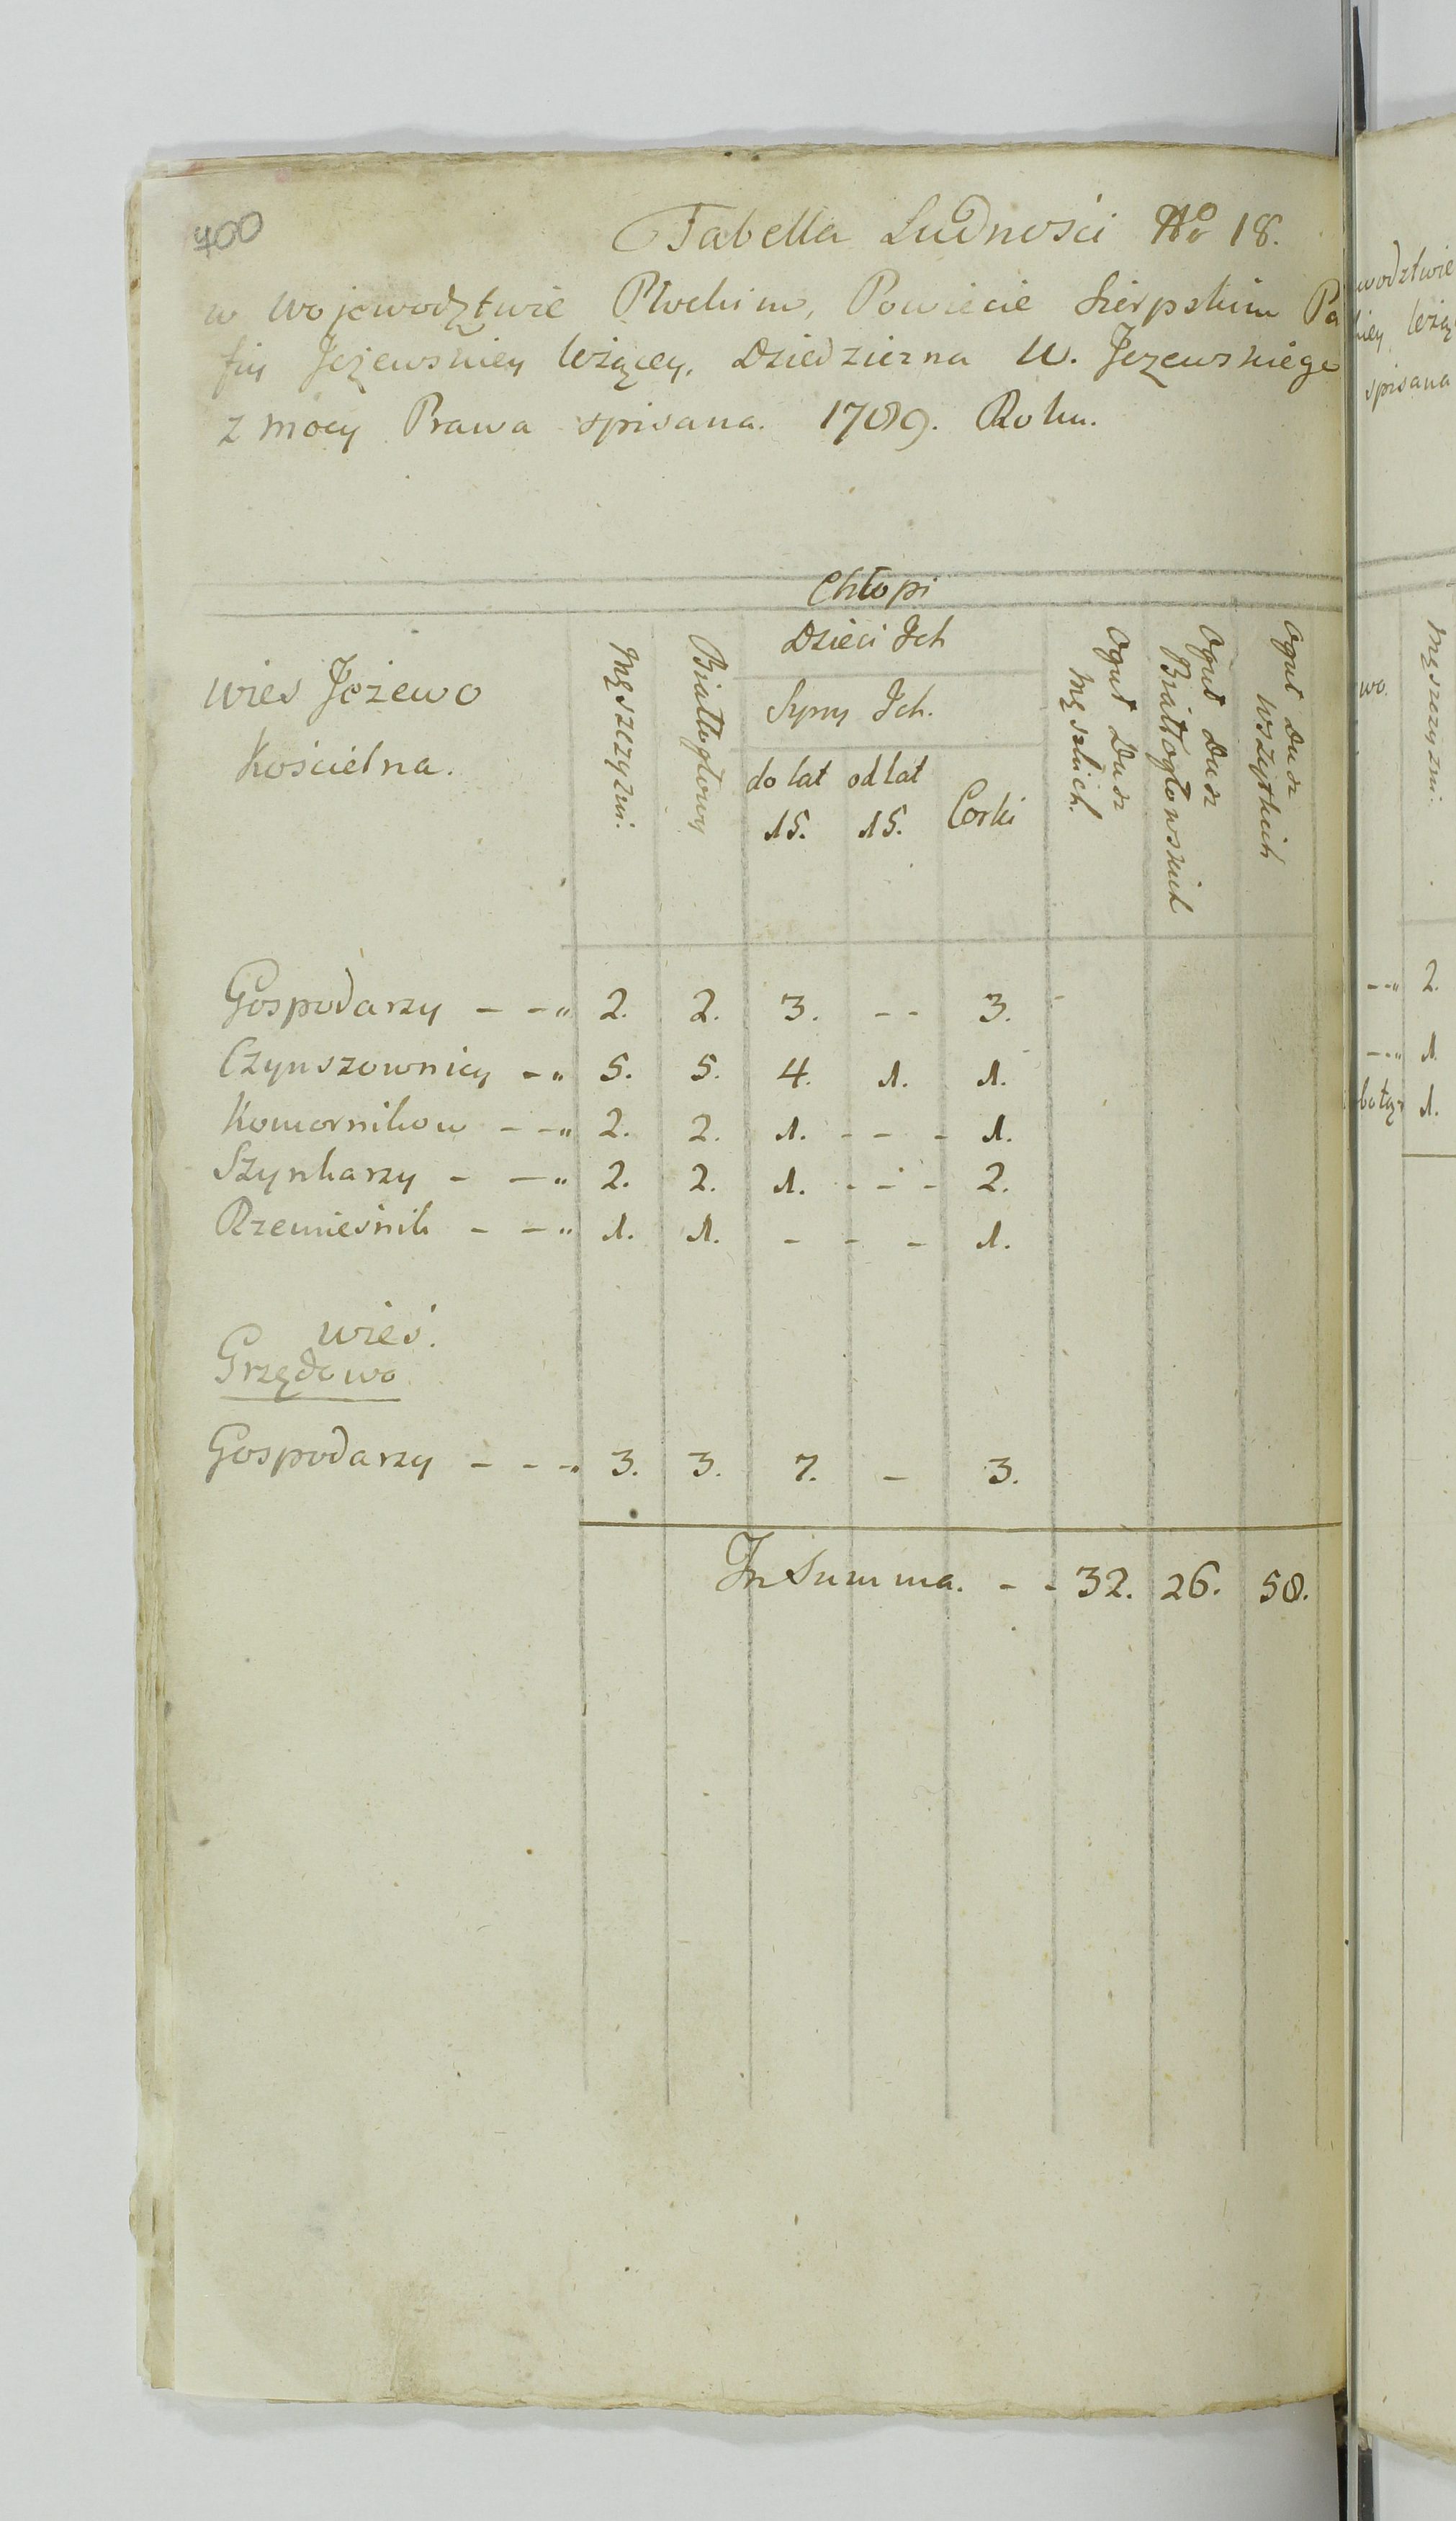 700
Tabella Ludności No 18.
w Wojewodztwie Płockim, Powiecie Sierpskim Pa
fiy Jeżewskiey leżącey, Dziedziczna W. Jezewskiego
z mocy Prawa spisana. 1789. Roku.
Chłopi
Dzieci Jch
Syny Jch.
wies Jeżewo
Kościelna.
Męszczyzni.
Białłogłowy
do lat 15.
od lat 15.
Corki
Oguł Dusz Męskich.
Oguł Dusz Białłogłowskich
Oguł Dusz Wszytkich
Gospodarzy - - „ 2. 2. 3. - - 3. -
Czynszownicy - „ 5. 5. 4. 1. 1.
Komornikow - - „ 2. 2. 1. - - - 1.
Szynkarzy - - „ 2. 2. 1. - - - 2.
Rzemieśnik - - „ 1. 1. - - - 1.
wieś.
Grzędowo
Gospodarzy - - - 3. 3. 7. - 3.
Jn Summa. - - 32. 26. 58.
wodztwie
kiey leżą
spisana
wo.
Męszczyzni.
- - „ 2.
- - „ 1.
1.